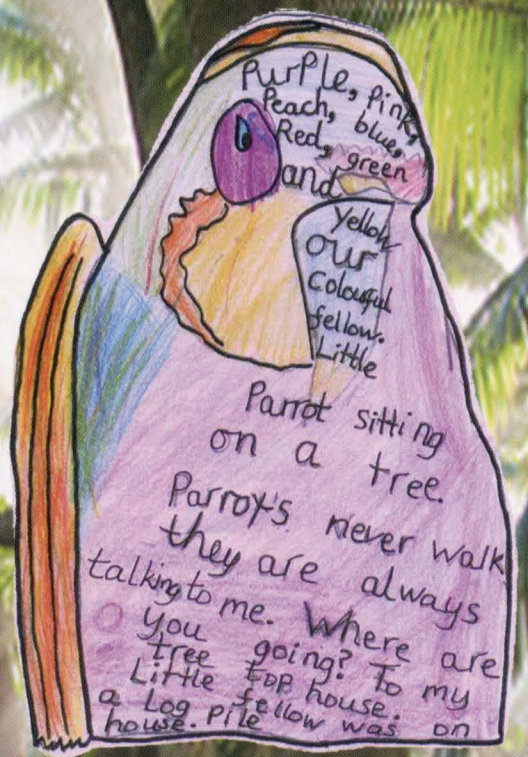 Purple, pink,
Peach, blue,
Red, green
and
Yellow
our
Colourful
fellow.
Little
Parrot sitting
on a tree.
Parroys never walk
they are always
talking to me. Where are
you going? To my
tree top house.
Little fellow was on
a Log pile
house.